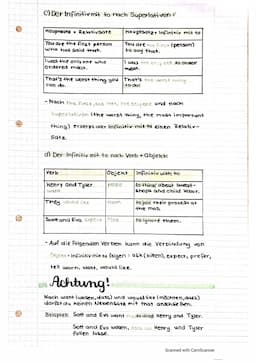 c) Der Infinitiv mit to nach Superlativen:
Hauptsatz + Relativsatz
Hauptsatz + Infinitiv mit to
You are the first person who has said that.
You are the first (person) to say that.
I was the only one who ordered meat.
I was the only one to order meat.
That's the worst thing you can do.
That's the worst thing to do.
- Nach the first, the next, the only one und nach
Superlativen (the worst thing, the most important
thing) ersetzt der Infinitiv mit to einen Relativ-
satz.
d) Der Infinitiv mit to nach Verb + Objekt:
Verb
Objekt
Infinitiv with to
Henry and Tyler
to think about sweat-
shops and child labor.
They
to join their protest at
the mall.
Scott and Eva
to ignore them.
- Auf die folgenden Verben kann die Verbindung von
Objekt + Infinitiv mit to folgen: ask (bitten), expect, prefer,
tell, warn, want, would like.
Achtung!
Nach want (wollen, dass) und would like (möchten, dass)
darfst du keinen Nebensatz mit that anschließen.
Beispiel: Scott and Eva want to Henry and Tyler.
Scott and Eva wollen, dass Henry und Tyler
Scanned with CamScanner